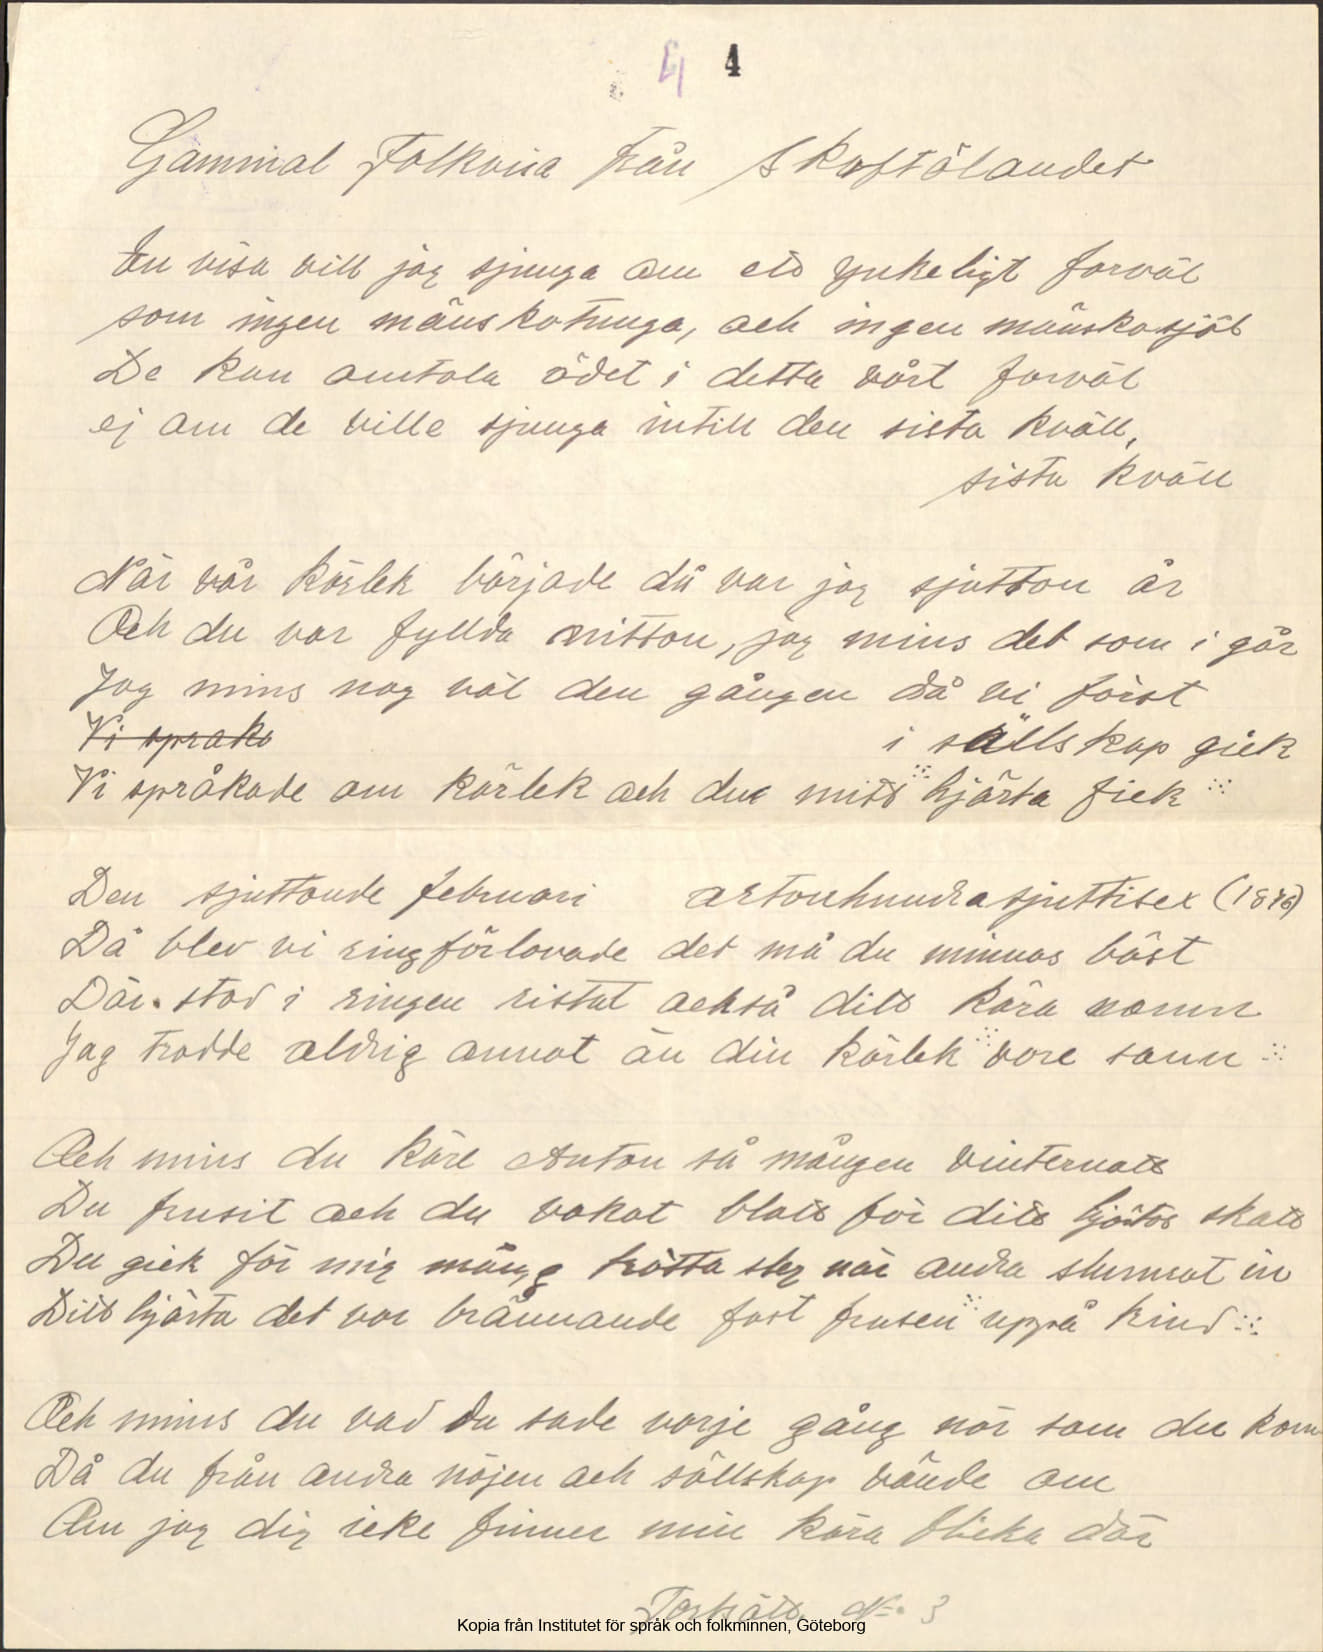 4 4
Gammal Folkvisa från Skaftölandet
En visa vill jag sjunga om ett ynkeligt farväl
som ingen mänskotunga, och ingen mänskosjäl
De kan omtala ödet i detta vårt farväl
ej om de ville sjunga intill den sista kväll,
sista kväll
När vår kärlek började då var jag sjutton år
Och du var fyllda nitton, jag mins det som i går
Jag mins nog väl den gången då vi först
Vi sprako
i sällskap gick
Vi språkade om kärlek och du mitt hjärta fick
Den sjuttonde februari artonhundrasjuttisex (1876)
Då blev vi ringförlovade det må du minnas bäst
Där stod i ringen ristat också ditt kära namn
Jag trodde aldrig annat än din kärlek vore sann
Och mins du käre Anton så mången vinternatt
Du frusit och du vakat blott för ditt hjärtas skatt
Du gick för mig mång trötta steg när andra slumrat in
Ditt hjärta det var brännande fast frusen uppå kind
Och mins du vad du sade varje gång när som du kom
Då du från andra nöjen och sällskap vände om
Om jag dig icke finner min kära flicka där
Fortsätt No. 3
Kopia från Institutet för språk och folkminnen, Göteborg